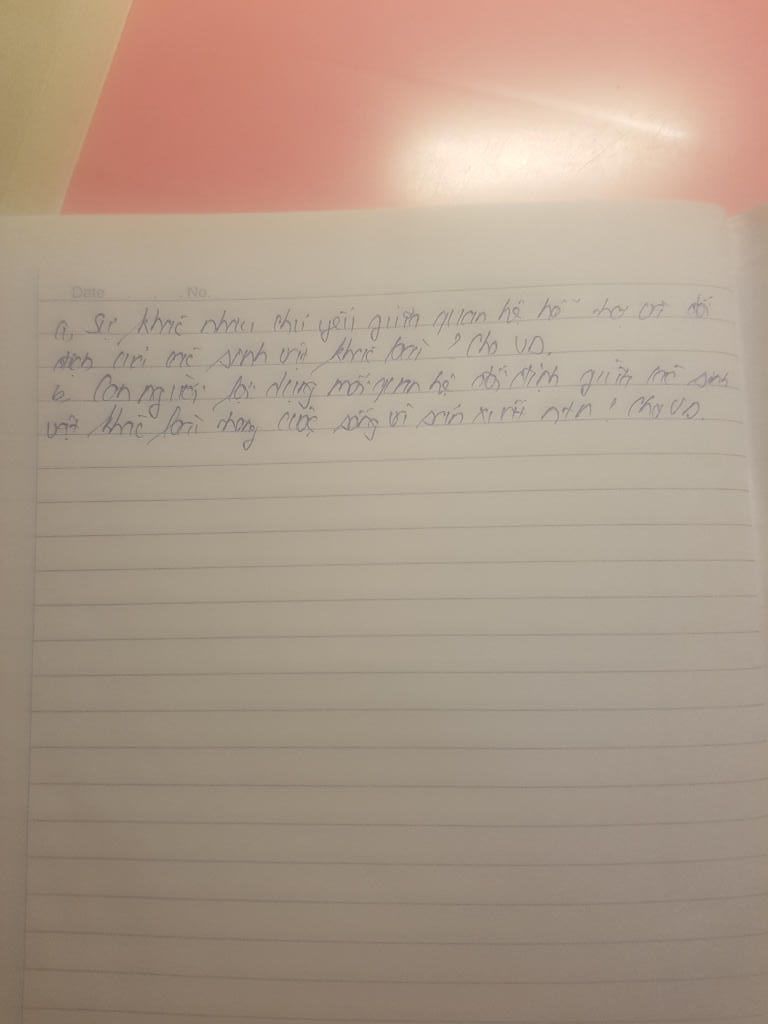 Date . . . No.
a, Sự khác nhau chủ yếu giữa quan hệ hỗ trợ và đối
địch của các sinh vật khác loài ? Cho VD.
b. Con người lợi dụng mối quan hệ đối địch giữa các sinh
vật khác loài trong cuộc sống và sản xuất ntn ? Cho VD.